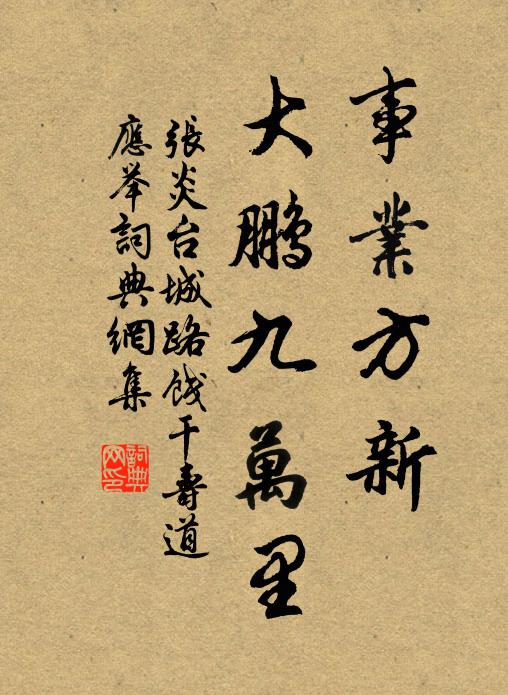 事業方新
大鹏九萬里
張炎台城路餞干壽道
應举詞典網集
詞典网印